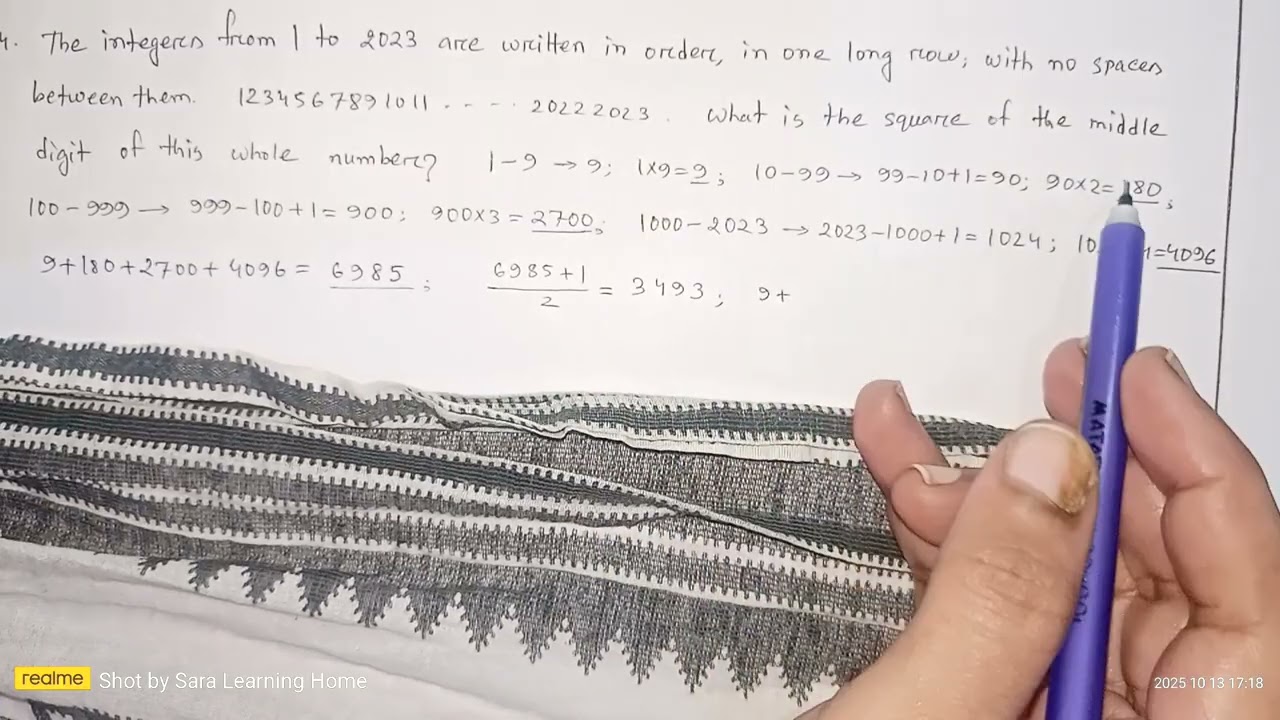 4. The integers from 1 to 2023 are written in order, in one long row, with no spaces
between them. 1234567891011 ..... 20222023. What is the square of the middle
digit of this whole number? 1-9 → 9; 1×9=9; 10-99 → 99-10+1=90; 90×2=180;
100-999 → 999-100+1=900; 900×3=2700; 1000-2023 → 2023-1000+1=1024; 10 =4096
9+180+2700+4096= 6985; 6985+1/2 = 3493; 9+
MATA
realme Shot by Sara Learning Home
2025 10 13 17:18